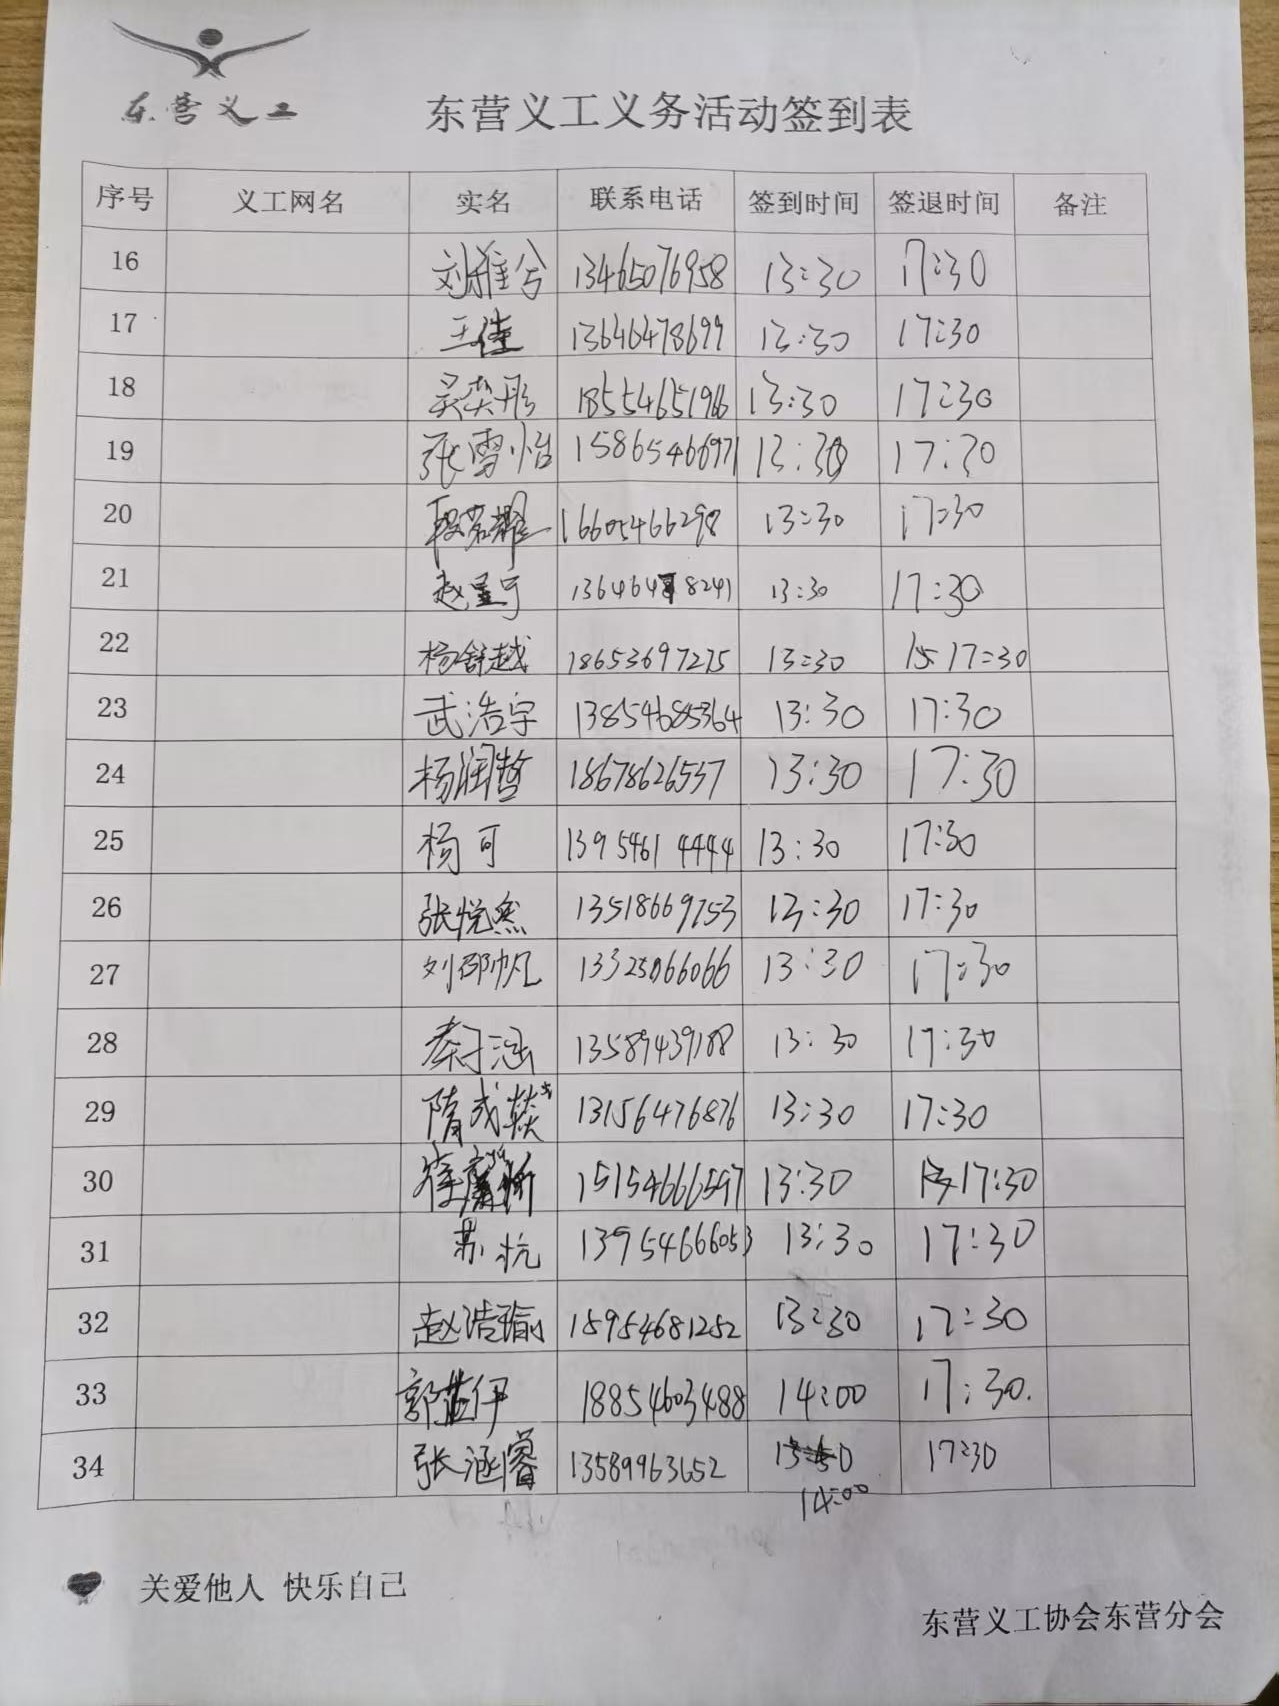 东营义工
东营义工义务活动签到表
序号 义工网名 实名 联系电话 签到时间 签退时间 备注
16 刘雅兮 13465076958 13:30 17:30
17 王佳 13646478699 13:30 17:30
18 吴奕彤 18554651966 13:30 17:30
19 张雪怡 15865466971 13:30 17:30
20 段茗耀 16605466298 13:30 17:30
21 赵星宇 13:30 17:30
22 杨舒越 18653697275 13:30 17:30
23 武浩宇 13854685364 13:30 17:30
24 杨润哲 18678626537 13:30 17:30
25 杨可 13954614444 13:30 17:30
26 张悦然 13518669753 13:30 17:30
27 刘邵帆 13325066066 13:30 17:30
28 秦子涵 13589439188 13:30 17:30
29 隋成燚 13156476876 13:30 17:30
30 15154666597 13:30 17:30
31 苏杭 13954666053 13:30 17:30
32 赵浩瑜 15954681252 13:30 17:30
33 18854603488 14:00 17:30.
34 张涵睿 13589963652 17:30
14:00
关爱他人 快乐自己
东营义工协会东营分会